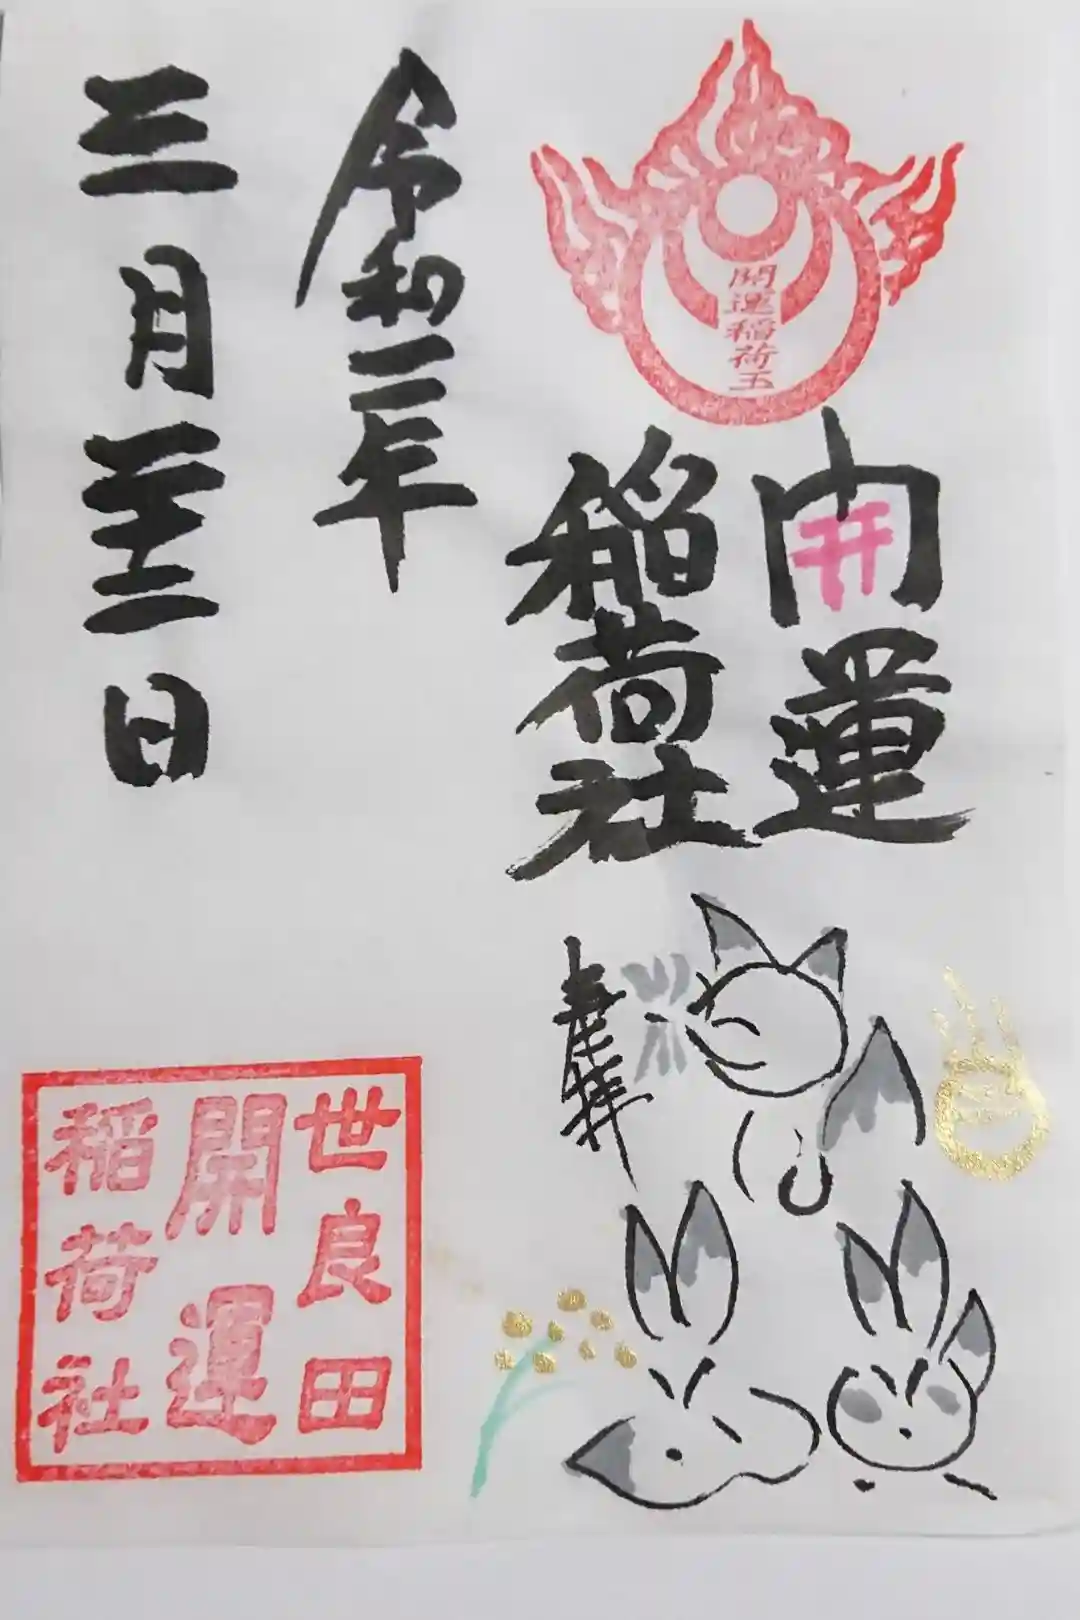 開運稲荷玉
開運
稲荷社
奉拝
令和二年
三月二十二日
世良田
開運
稲荷社